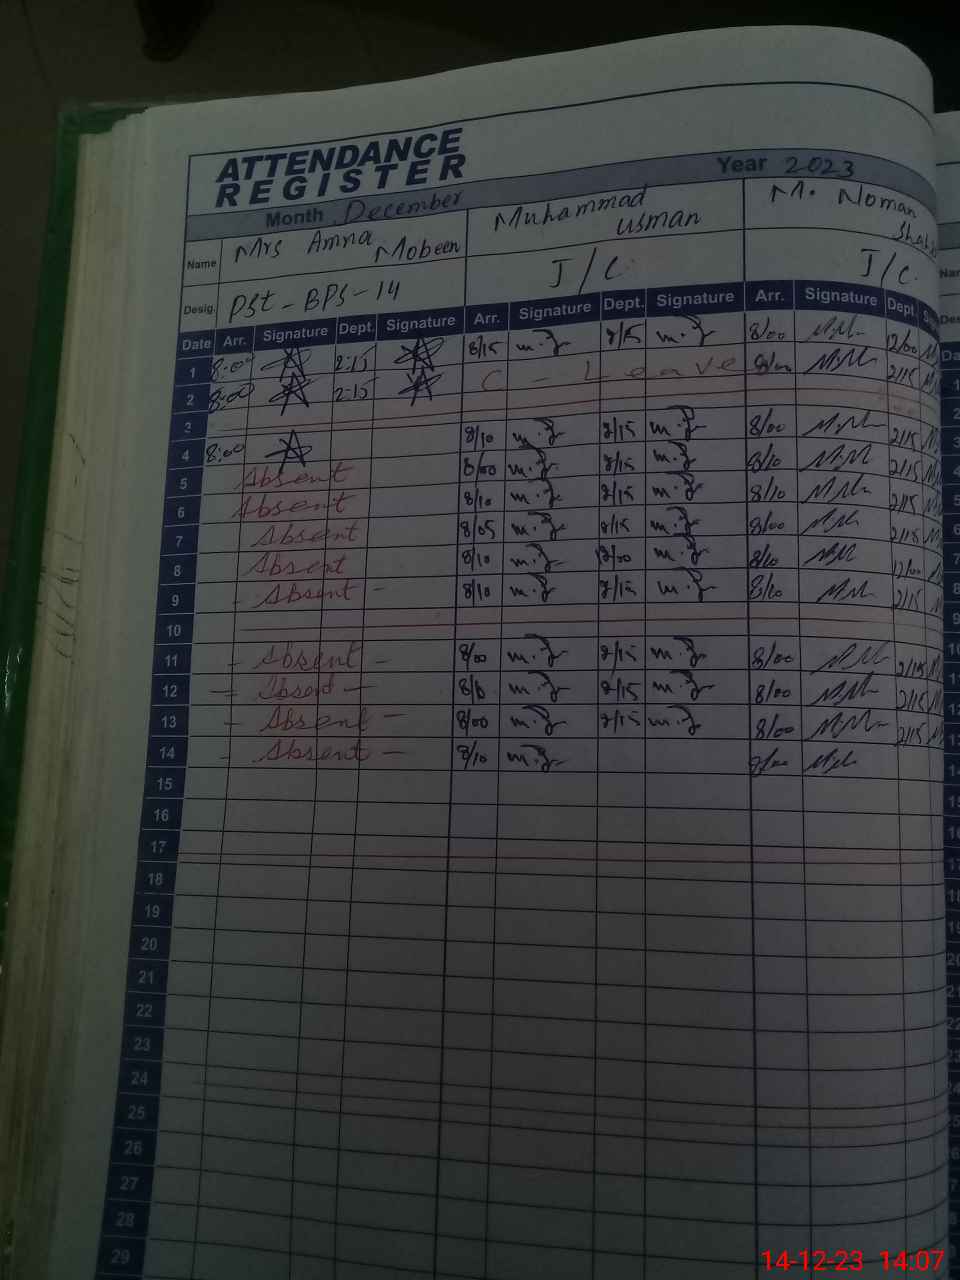 ATTENDANCE
REGISTER
Year 2023
Month December
Name Mrs Amna Mobeen Muhammad usman M. Noman
Desig. PST - BPS - 14 J/C. J/C.
Date Arr. Signature Dept. Signature Arr. Signature Dept. Signature Arr. Signature Dept.
1 8:00 2:15 8/15 m.z 2/15 m.z 8/00 12/00
2 8:00 2:15 C - Leave 8/00 2/15
3
4 8:00 8/10 m.z 2/15 m.z 8/00 2/15
5 Absent 8/00 m.z 2/15 m.z 8/10 2/15
6 Absent 8/10 m.z 2/15 m.z 8/10 2/15
7 Absent 8/05 m.z 2/15 m.z 8/00 2/15
8 Absent 8/10 m.z 12/00 m.z 8/10 12/00
9 - Absent - 8/10 m.z 2/15 m.z 8/10 2/15
10
11 - Absent - 8/00 m.z 2/15 m.z 8/00 2/15
12 - Absent - m.z 2/15 m.z 8/00 2/15
13 - Absent - 8/00 m.z 2/15 m.z 8/00 2/15
14 - Absent - 8/10 m.z 8/00
15
16
17
18
19
20
21
22
23
24
25
26
27
28
29
14-12-23 14:07